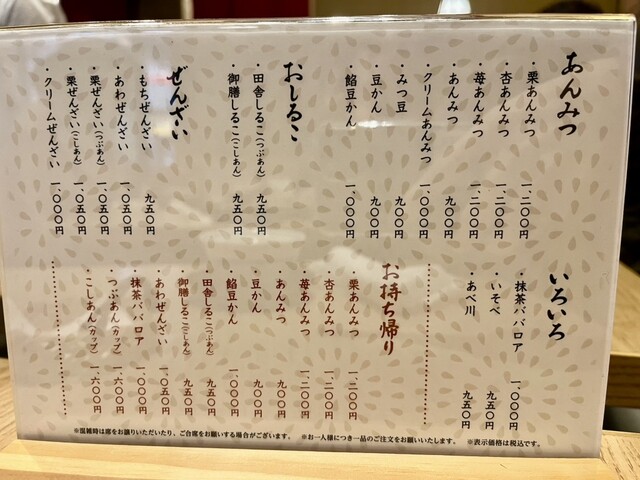 あんみつ
・栗あんみつ 一、二〇〇円
・杏あんみつ 一、二〇〇円
・苺あんみつ 一、二〇〇円
・あんみつ 九〇〇円
・クリームあんみつ 一、〇〇〇円
・みつ豆 九〇〇円
・豆かん 九〇〇円
・餡豆かん 一、〇〇〇円
おしるこ
・田舎しるこ(つぶあん) 九五〇円
・御膳しるこ(こしあん) 九五〇円
ぜんざい
・もちぜんざい 九五〇円
・あわぜんざい 一、〇五〇円
・栗ぜんざい(つぶあん) 一、〇五〇円
・栗ぜんざい(こしあん) 一、〇五〇円
・クリームぜんざい 一、〇〇〇円
いろいろ
・抹茶ババロア 一、〇〇〇円
・いそべ 九五〇円
・あべ川 九五〇円
お持ち帰り
・栗あんみつ 一、二〇〇円
・杏あんみつ 一、二〇〇円
・苺あんみつ 一、二〇〇円
・あんみつ 九〇〇円
・豆かん 九〇〇円
・餡豆かん 一、〇〇〇円
・田舎しるこ(つぶあん) 九五〇円
・御膳しるこ(こしあん) 九五〇円
・あわぜんざい 一、〇五〇円
・抹茶ババロア 一、〇〇〇円
・つぶあん(カップ) 一、六〇〇円
・こしあん(カップ) 一、六〇〇円
※混雑時は席をお譲りいただいたり、ご台席をお願いする場合がございます。 ※お一人様につき一品のご注文をお願いいたします。 ※表示価格は税込です。